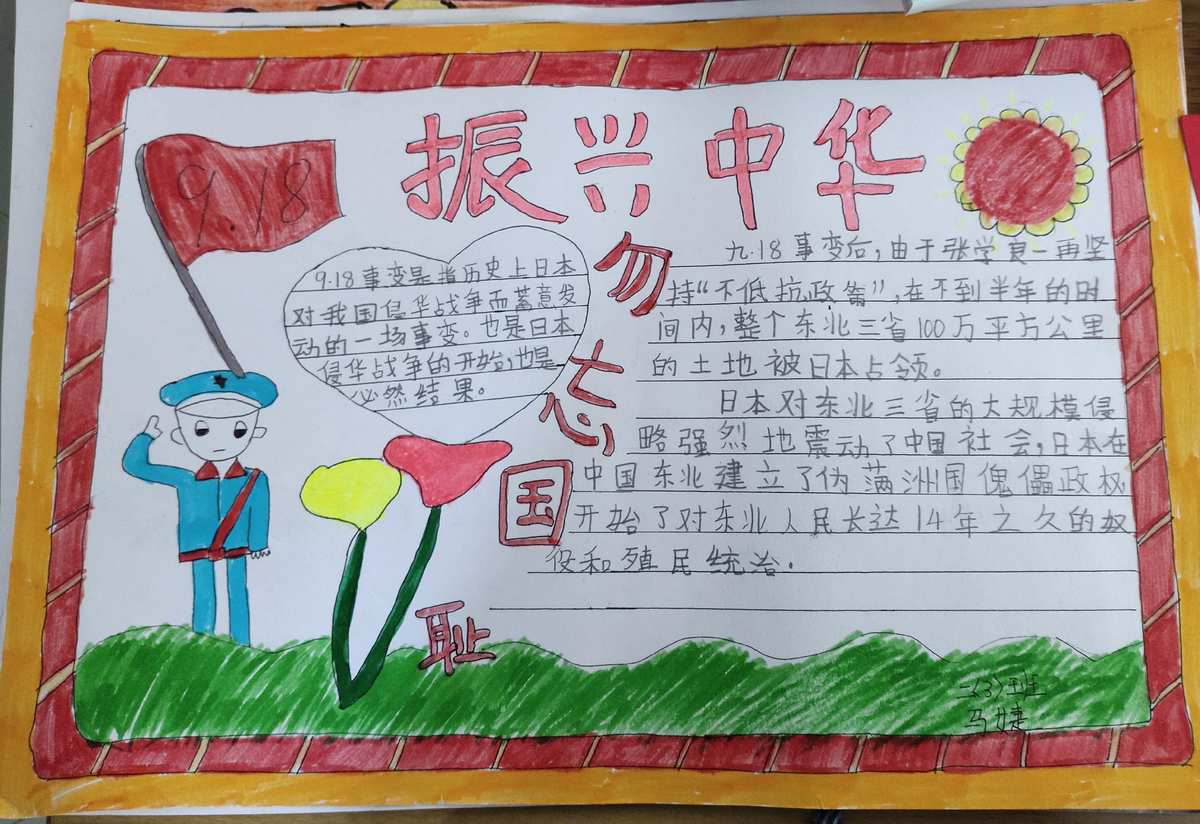 振兴中华
9.18
勿忘国耻
9.18事变是指历史上日本
对我国侵华战争而蓄意发
动的一场事变。也是日本
侵华战争的开始，也是
必然结果。
九.18事变后，由于张学良一再坚
持“不低抗政策”，在不到半年的时
间内，整个东北三省100万平方公里
的土地被日本占领。
日本对东北三省的大规模侵
略强烈地震动了中国社会，日本在
中国东北建立了伪满洲国傀儡政权
开始了对东北人民长达14年之久的奴
役和殖民统治.
二(3)班
马婕